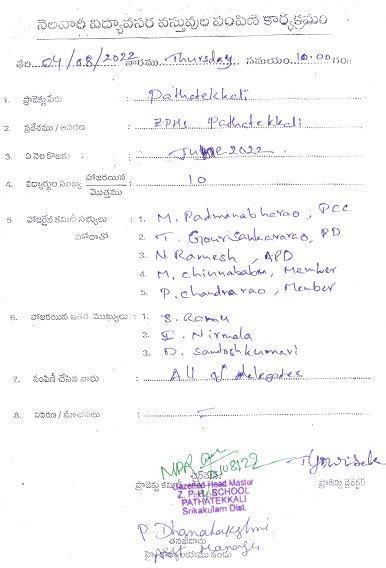 నెలవారీ విద్యావసర వస్తువుల పంపిణీ కార్యక్రమం
తేది 04/08/2022 వారము Thursday సమయం 10:00 గం॥
1. ప్రాజెక్టు పేరు : Pathatekkali
2. ప్రదేశము / ఆవరణ : ZPHS Pathatekkali
3. ఏ నెల కొరకు : June 2022
4. విద్యార్థుల సంఖ్య హాజరయిన / మొత్తము : 10
5. హాజరైన కమిటీ సభ్యులు : 1. M. Padmanabharao, PCC
హోదాతో 2. T. Gourisankararao, PD
3. N. Ramesh, APD
4. M. Chinnababu, Member
5. P. Chandrarao, Member
6. హాజరయిన ఇతర ముఖ్యులు : 1. S. Ramu
2. I. Nirmala
3. D. Santoshkumari
7. పంపిణీ చేసిన వారు : All of delegates
8. వివరణ / సూచనలు : –
ప్రాజెక్టు కమిటీ ఛైర్మన్ ప్రాజెక్టు డైరెక్టర్
Gazetted Head Master
Z. P. H. SCHOOL
PATHATEKKALI
Srikakulam Dist.
P. Dhanalakshmi
Manager